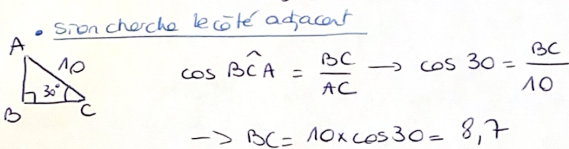 • Si on cherche le côté adjacent
A
10
30°
B
C
cos BĈA = BC/AC → cos 30 = BC/10
→ BC = 10 x cos 30 = 8,7